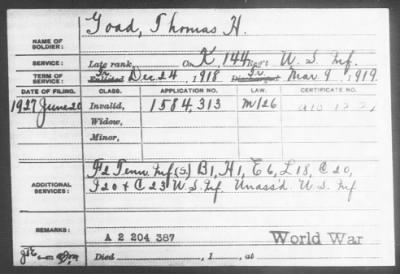 NAME OF SOLDIER: Goad, Thomas H.
SERVICE: Late rank, Co K, 144 Reg't U.S. Inf.
TERM OF SERVICE: Tr. Enlisted Dec 24, 1918 Tr. Discharged Mar 9, 1919
DATE OF FILING. CLASS. APPLICATION NO. LAW. CERTIFICATE NO.
1927 June 20 Invalid, 1584,313 M/26
Widow,
Minor,
ADDITIONAL SERVICES: F2 Tenn. Inf (S) B1, H1, E6, L18, C20,
I20 + C23 U.S. Inf Unass'd U.S. Inf
REMARKS: A 2 204 387 World War
Died , 1 , at